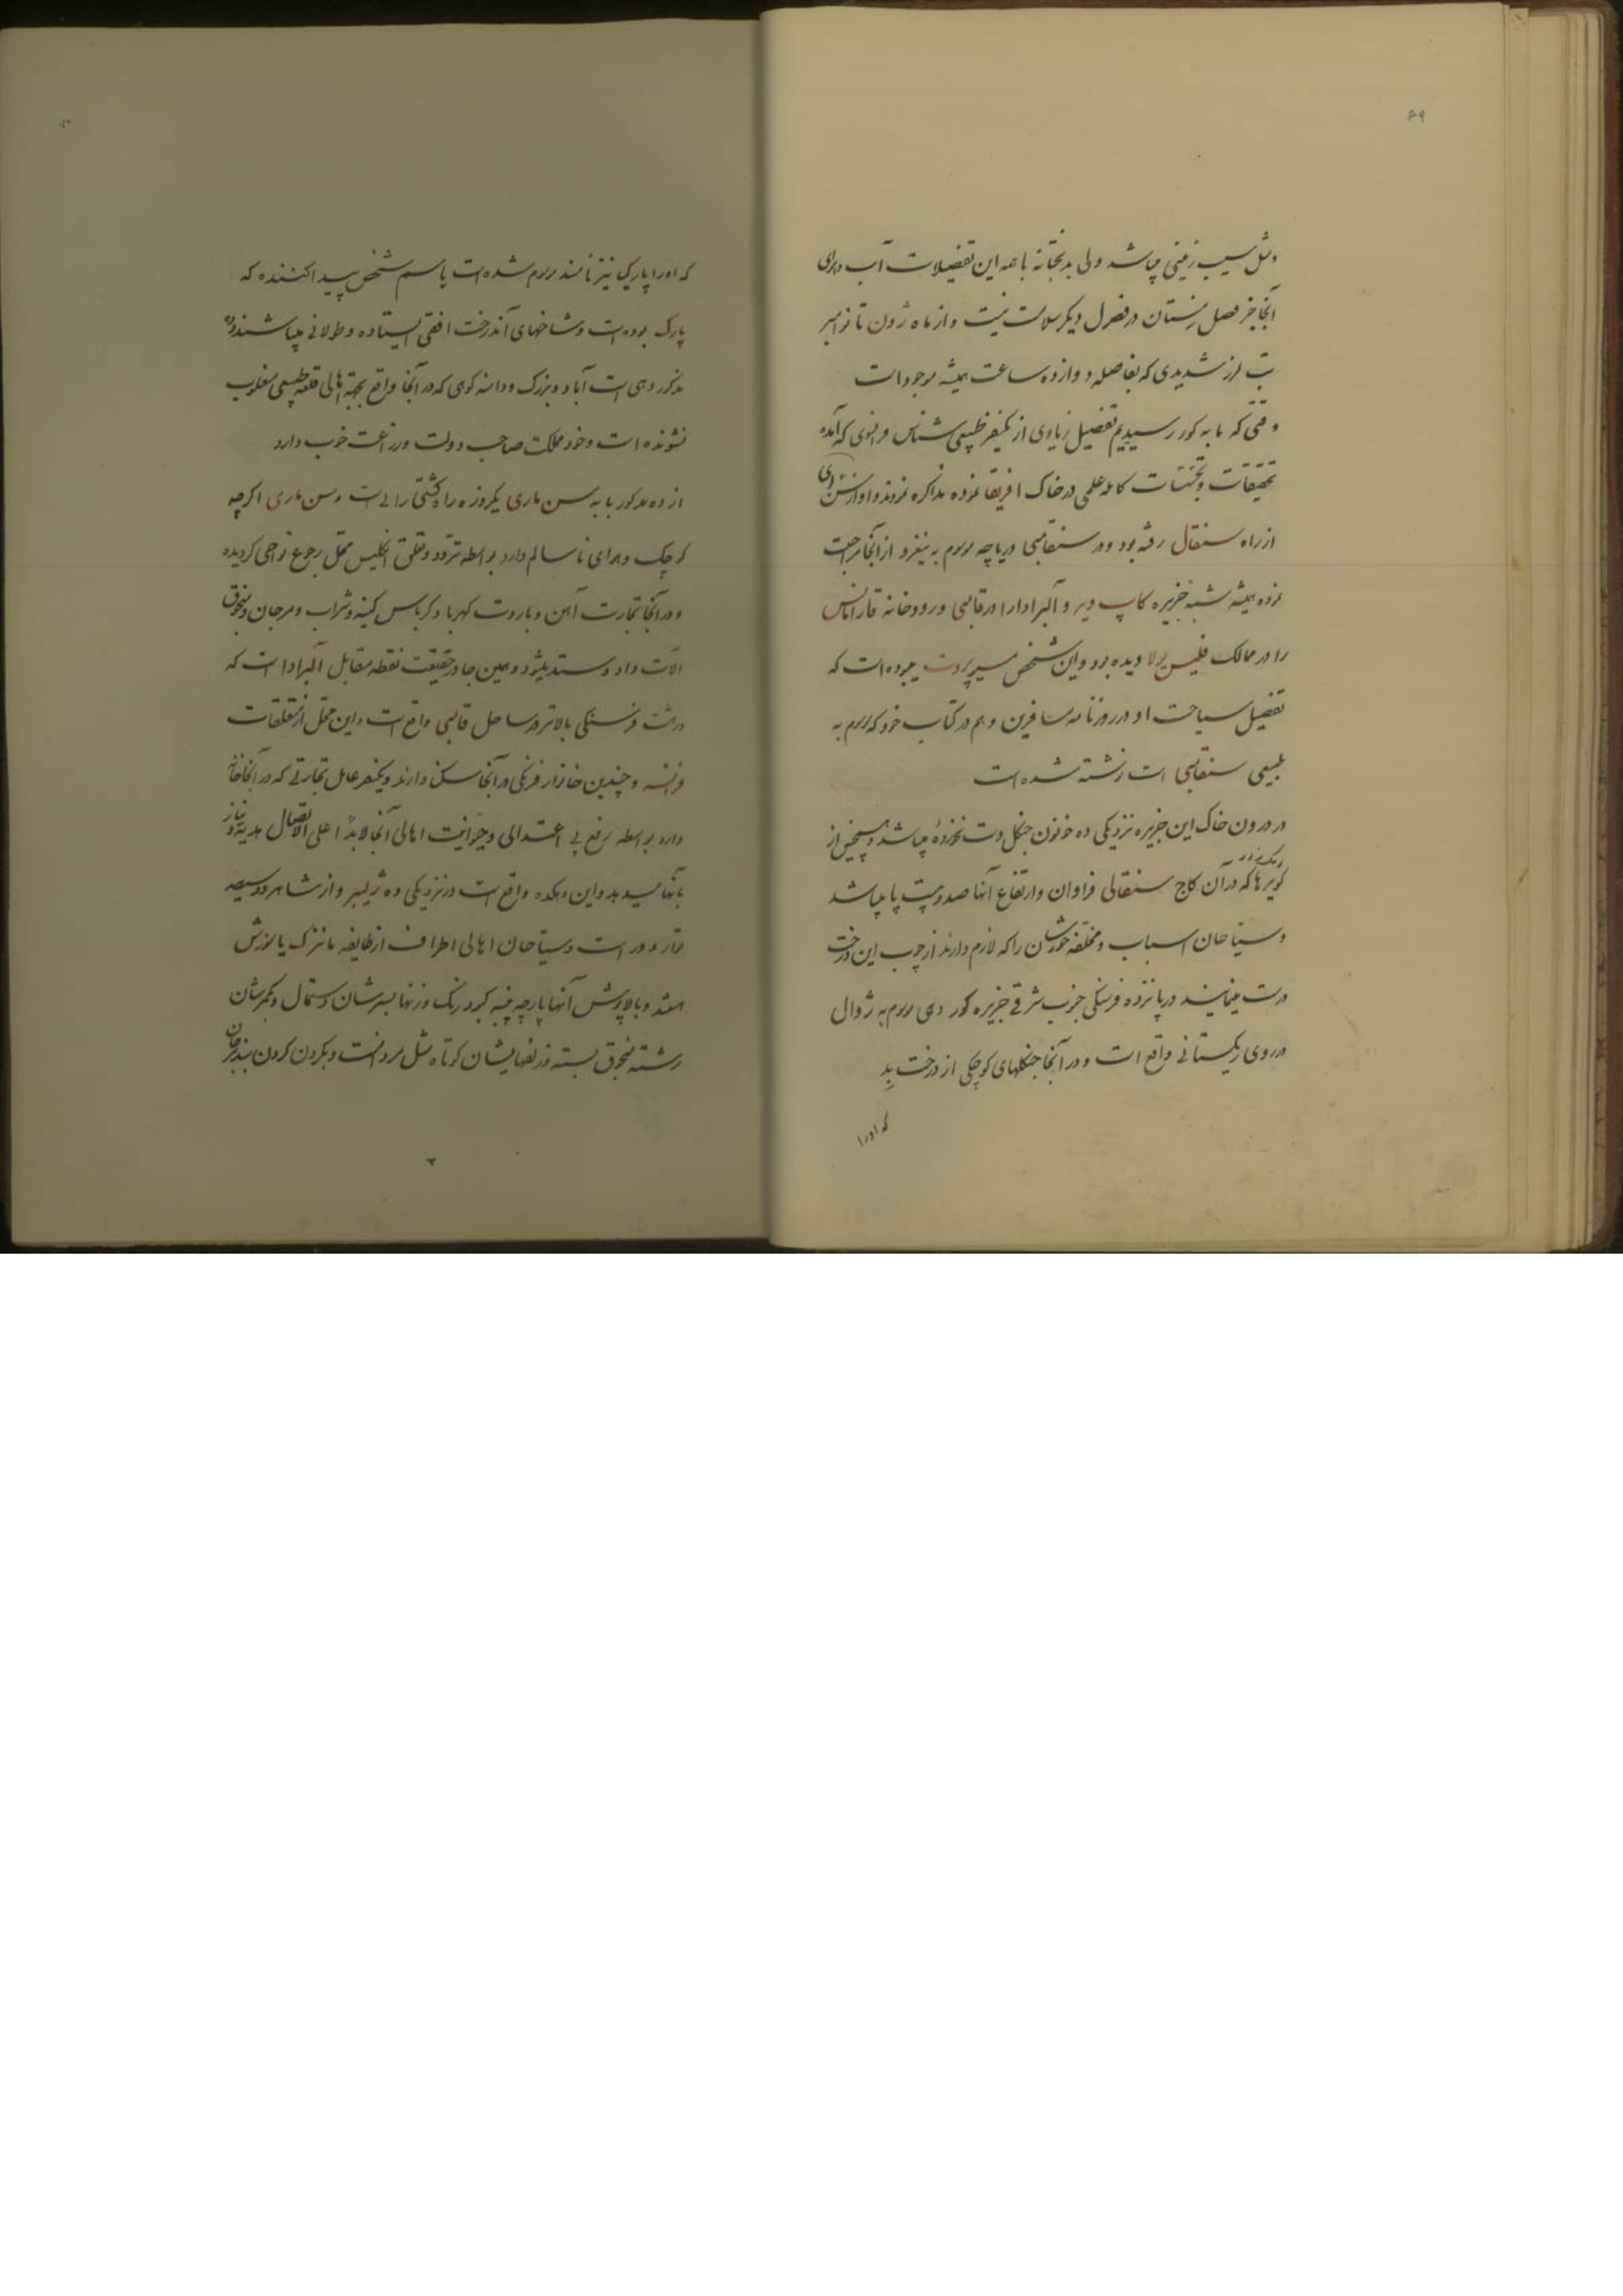 ۴۹
مثل سیب زمینی میباشد ولی بدبختانه با همه این تفضیلات آب و هوای
آنجا جز فصل زمستان در فصول دیگر سلامت نیست و از ماه ژون تا نوامبر
تب لرز شدیدی که بفاصله دوازده ساعت همیشه موجود است
وقتی که ما به کور رسیدیم تفضیل زیادی از یکنفر طبیعی شناس فرانسوی که آمده
تحقیقات و تجسّسات کامله علمی در خاک افریقا نموده مذاکره نمودند و او از
از راه سنقال رفته بود و در سنقامبی دریاچه موسوم به پنفرو از آنجا مراجعت
نموده همیشه شبه جزیره کاپ ویر و آلبرادارا در قامبی و رودخانه قازامانس
را در ممالک فلیس یولا دیده بود و این شخص مسیو پروت میبوده است که
تفضیل سیاحت او در روزنامه مسافرین و هم در کتاب خود که موسوم به
طبیعی سنقامبی است نوشته شده است
در درون خاک این جزیره نزدیکی ده جنگل دست نخورده میباشد و همچنین از
کویرها که در آن کاج سنقالی فراوان و ارتفاع آنها صد و بیست پا میباشد
و سیّاحان اسباب و مختلفه خودشان را که لازم دارند از چوب این درخت
درست مینمایند در پانزده فرسنگی جنوب شرقی جزیره کور دهی موسوم به ژوال
در روی ریگستانی واقع است و در آنجا جنگلهای کوچکی از درخت بد
که او را
که او را پارکی نیز نامند موسوم شده است باسم شخص پیدا کننده که
پارک بوده است و شاخهای آندرخت افقی ایستاده و طولانی میباشند و ده
مذکور دهی است آباد و بزرگ و دامنه کوهی که در آنجا واقع بجهة اهالی قلعه طبیعی مغلوب
نشونده است و خود مملکت صاحب دولت و زراعت خوب دارد
از ده مذکور بابه سن ماری یکروزه راه کشتی رانی است و سن ماری اگرچه
کوچک و هوای ناسالم دارد بواسطه تردد و تعلق انگلیس محل رجوع نواحی گردیده
و در آنجا تجارت آهن و باروت کهربا و کرباس کینه و شراب و مرجان و منجوق
آلات داد و ستد میشود و همین جا در حقیقت نقطه مقابل آلبرادا است که
در هشت فرسنگی بالاتر در ساحل قامبی واقع است و این محل از متعلقات
فرانسه و چندین خانوار فرنگی در آنجا سکنا دارند و یکنفر عامل تجارتی که در آنجا خانه
دارد بواسطه رفع بی اعتدالی و حیوانیت اهالی آنجا لابداً علی الاتصال هدیه و نیاز
بآنها میدهد و این دهکده واقع است در نزدیکی ده ژلیبر و از
قرار و دور است و سیّاحان اهالی اطراف از طایفه ماندرک یا سوزش
هستند و بالاپوش آنها پارچه پنبه کبود رنگ و زنها بسرشان دستمال و بکمرشان
رشته منجوق بسته و زلفهایشان کوتاه مثل مرد است و بگردن